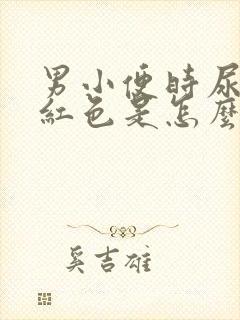 男小便時尿
紅色是怎麼
奚吉雄